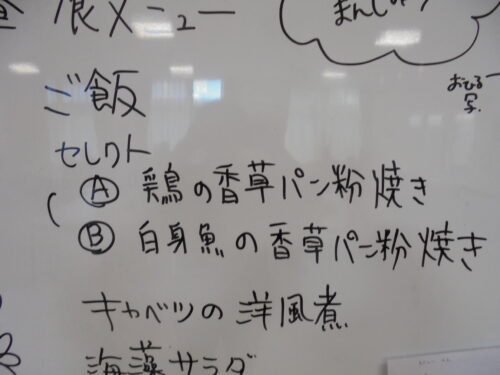 食メニュー
まんじゅう
おひる
写
ご飯
セレクト
Ⓐ 鶏の香草パン粉焼き
Ⓑ 白身魚の香草パン粉焼き
キャベツの洋風煮
海藻サラダ